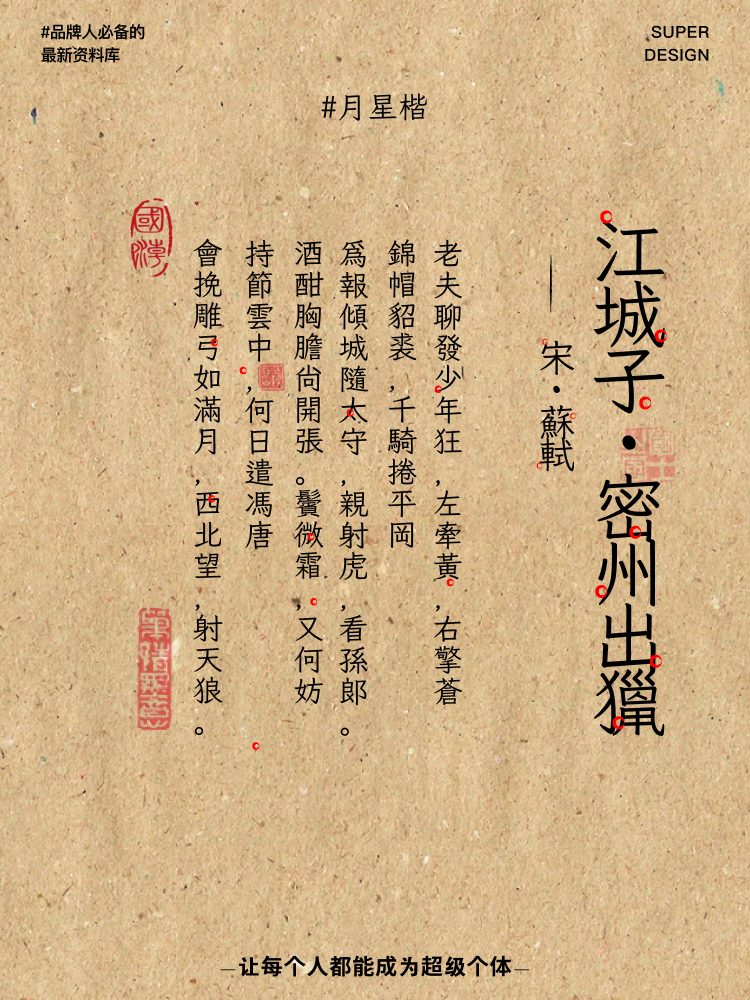 #品牌人必备的
最新资料库
SUPER
DESIGN
#月星楷
江城子·密州出獵
—宋·蘇軾
老夫聊發少年狂，左牽黃，右擎蒼
錦帽貂裘，千騎捲平岡
爲報傾城隨太守，親射虎，看孫郎。
酒酣胸膽尚開張。鬢微霜，又何妨
持節雲中，何日遣馮唐
會挽雕弓如滿月，西北望，射天狼。
國潮
—让每个人都能成为超级个体—